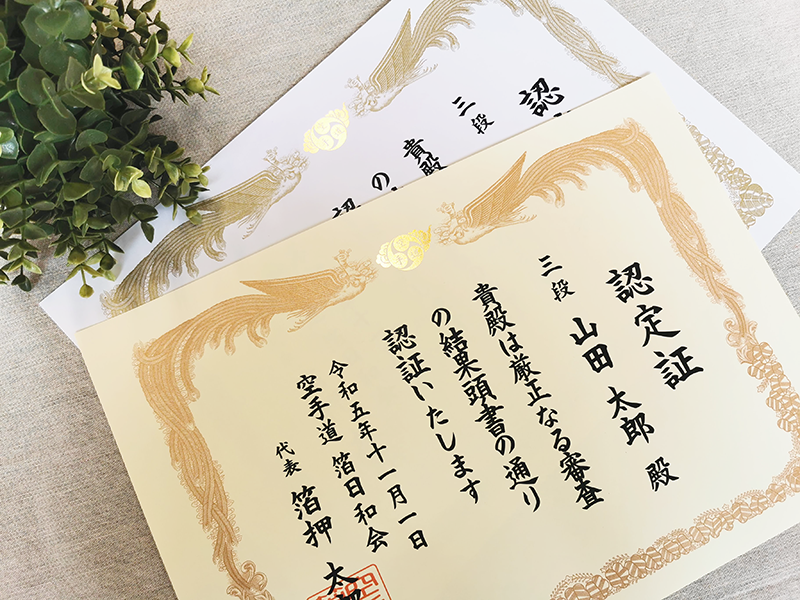 認定証
三段 山田 太郎 殿
貴殿は厳正なる審査
の結果頭書の通り
認証いたします
令和五年十一月一日
空手道 箔日和会
代表 箔押 太郎
認
三段
貴殿
の
認